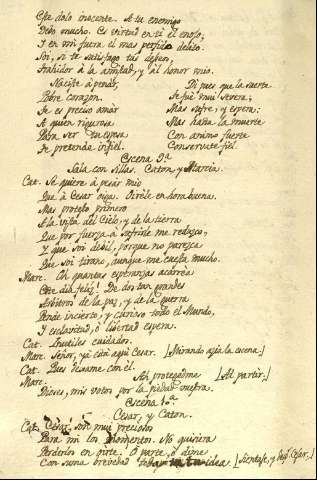 Este dolo inocente. A tu enemigo
Debo mucho. Es virtud en ti el enojo;
Y en mi fuera el mas perfido delito.
Soi, si te satisfago tus deseos,
Trahidor à la amistad, y al honor mio.
Naciste à penar,
Pobre corazon.
Te es preciso amàr
A quien rigurosa
Para ser tu esposa
Te pretende infiel.
Di pues que la suerte
Te fuè mui severa;
Mas sufre, y espera;
Mas hasta la muerte
Con animo fuerte
Conservate fiel.
Escena 9.ª
Sala con sillas. Caton, y Marcia.
Cat. Se quiere à pesar mio
Que à Cesar oiga. Oirèle en hora buena.
Mas protesto primero
A la vista del Cielo, y de la tierra
Que por fuerza à sufrirle me reduzco;
Y que soi debil, porque no parezca
Que soi tirano, aunque me cuesta mucho.
Marc. Oh quantas esperanzas acarrèa
Este dia feliz! De dos tan grandes
Arbitros de la paz, y de la guerra
Pende incierto, y curioso todo el Mundo,
Y esclavitud, ò libertad espera.
Cat. Inutiles cuidados.
Marc. Señor, ya està aqui Cesar. [Mirando azia la escena.]
Cat. Pues dèxame con èl.
Marc. Ah protegedme [Al partir.]
Dioses, mis votos por la piedad vuestra.
Escena 10.ª
Cesar, y Caton.
Cat. Cesar, son mui preciosos
Para mi los momentos. No quisiera
Perderlos en oirte. O parte, ò dime
Con suma brevedad tu idea [Sientase, y luego Cesar.]